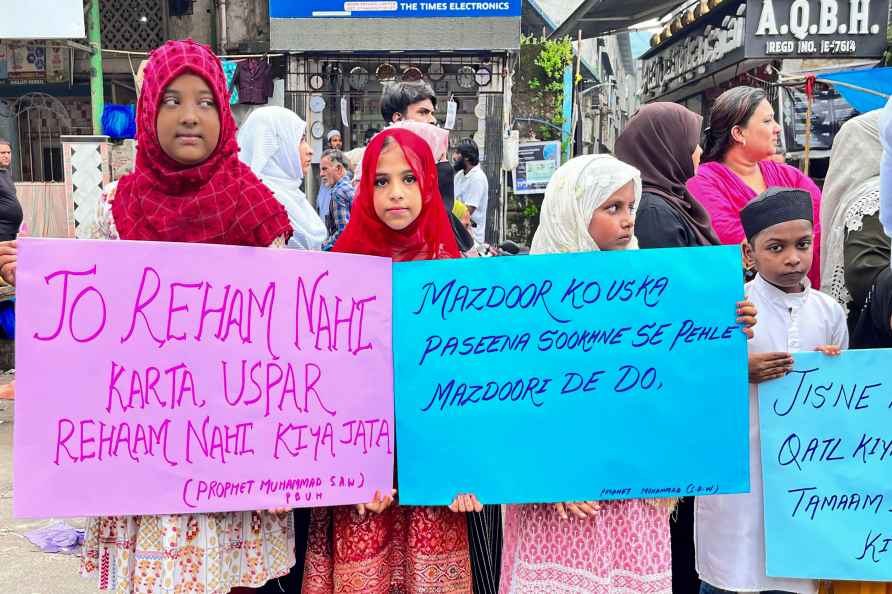 THE TIMES ELECTRONICS
A.Q.B.H.
REGD INO. E-7614
TO REHAM NAHI
KARTA, USPAR
REHAAM NAHI KIYA JATA
(PROPHET MUHAMMAD S.A.W)
PBUH
MAZDOOR KO USKA
PASEENA SOOKHNE SE PEHLE
MAZDOORI DE DO.
PROPHET MOHAMMAD (S.A.W)
JISNE
QATL KIY
TAMAAM
KI